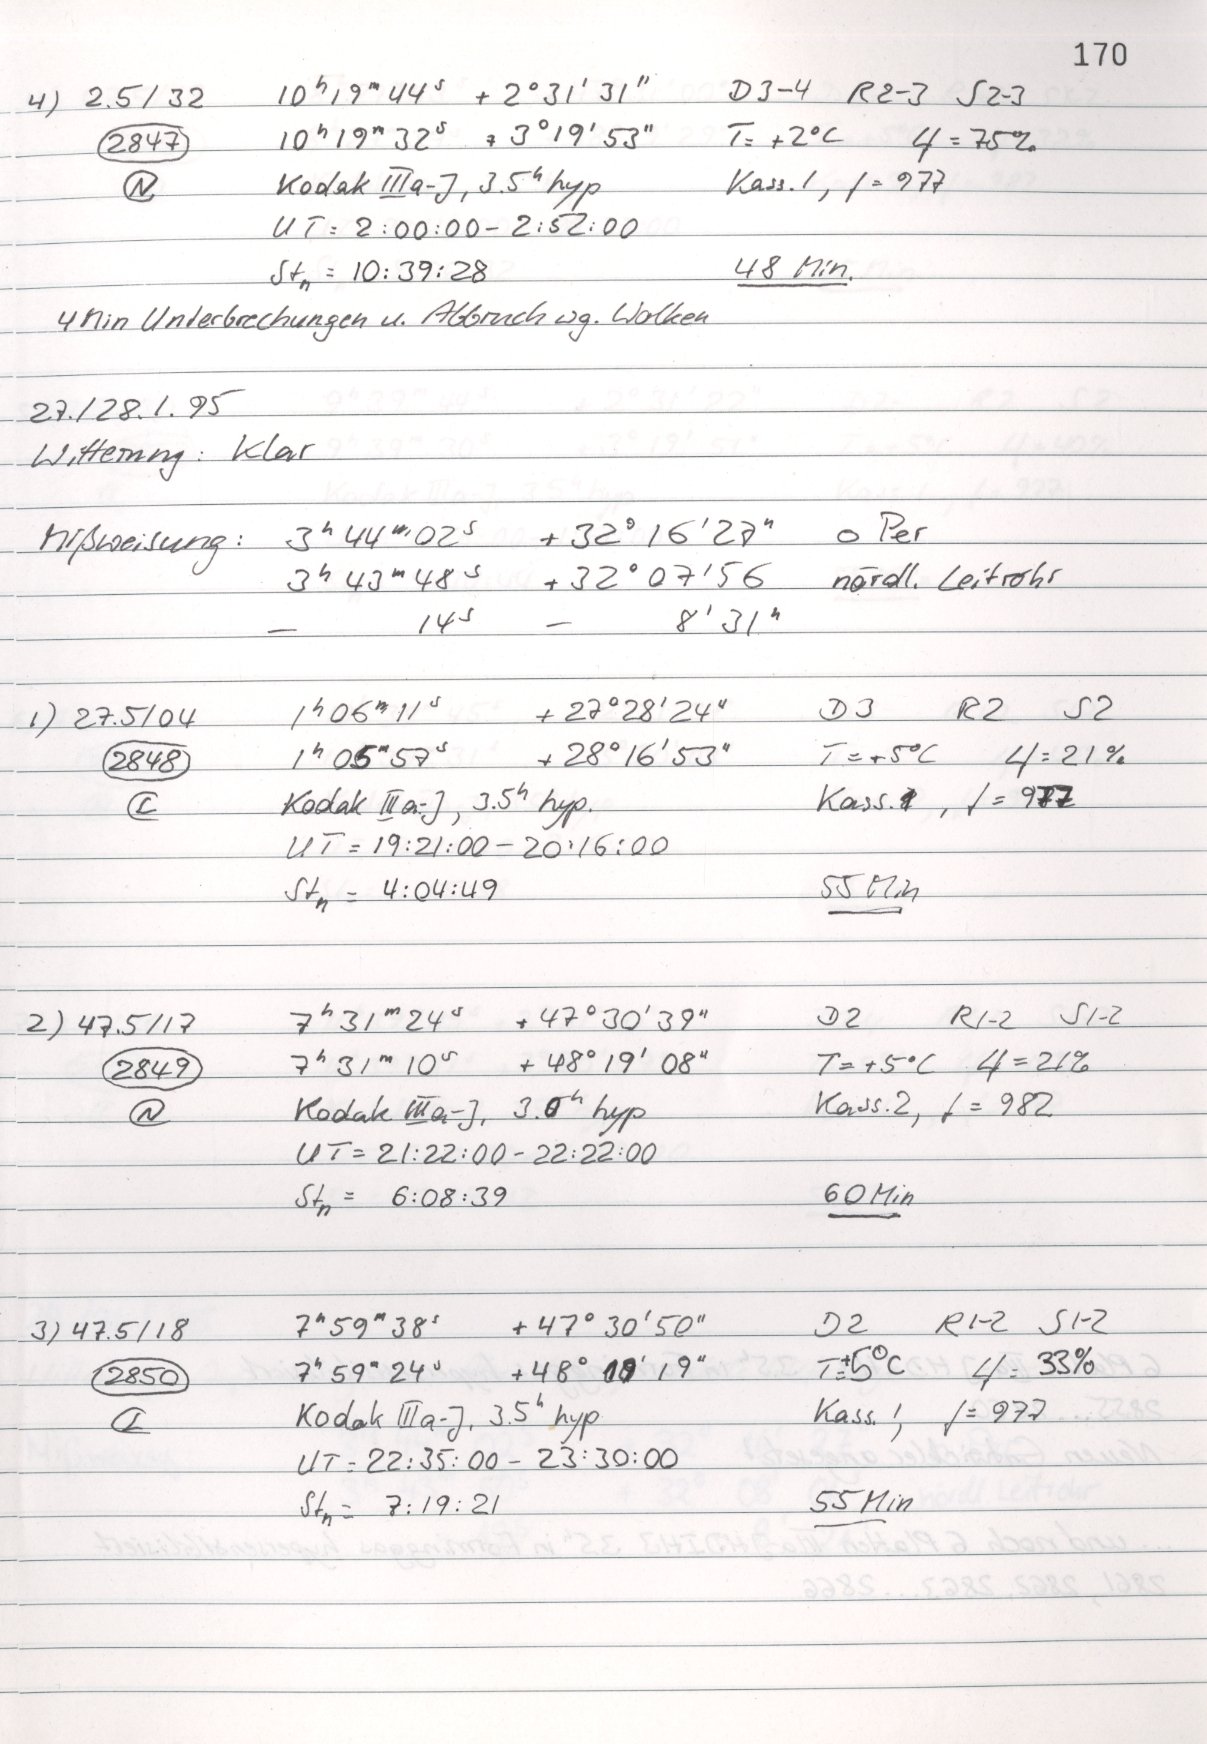 170
4) 2.5/32 10ʰ19ᵐ44ˢ +2°31'31" D3-4 R2-3 S2-3
2847 10ʰ19ᵐ32ˢ +3°19'53" T=+2°C φ=75%
N Kodak IIIa-J, 3.5ʰ hyp Kass.1, f=977
UT=2:00:00-2:52:00
Stₙ=10:39:28 48 Min.
4 Min Unterbrechungen u. Abbruch wg. Wolken
27./28.1.95
Witterung: Klar
Mißweisung: 3ʰ44ᵐ02ˢ +32°16'27" o Per
3ʰ43ᵐ48ˢ +32°07'56 nördl. Leitrohr
- 14ˢ - 8'31"
1) 27.5/04 1ʰ06ᵐ11ˢ +27°28'24" D3 R2 S2
2848 1ʰ05ᵐ57ˢ +28°16'53" T=+5°C φ=21%
Kodak IIIa-J, 3.5ʰ hyp. Kass.1, f=977
UT=19:21:00-20:16:00
Stₙ=4:04:49 55 Min
2) 47.5/17 7ʰ31ᵐ24ˢ +47°30'39" D2 R1-2 S1-2
2849 7ʰ31ᵐ10ˢ +48°19'08" T=+5°C φ=21%
N Kodak IIIa-J, 3.0ʰ hyp Kass.2, f=982
UT=21:22:00-22:22:00
Stₙ= 6:08:39 60 Min
3) 47.5/18 7ʰ59ᵐ38ˢ +47°30'50" D2 R1-2 S1-2
2850 7ʰ59ᵐ24ˢ +48°19'19" T=+5°C φ=33%
Kodak IIIa-J, 3.5ʰ hyp Kass.1, f=977
UT=22:35:00-23:30:00
Stₙ= 7:19:21 55 Min